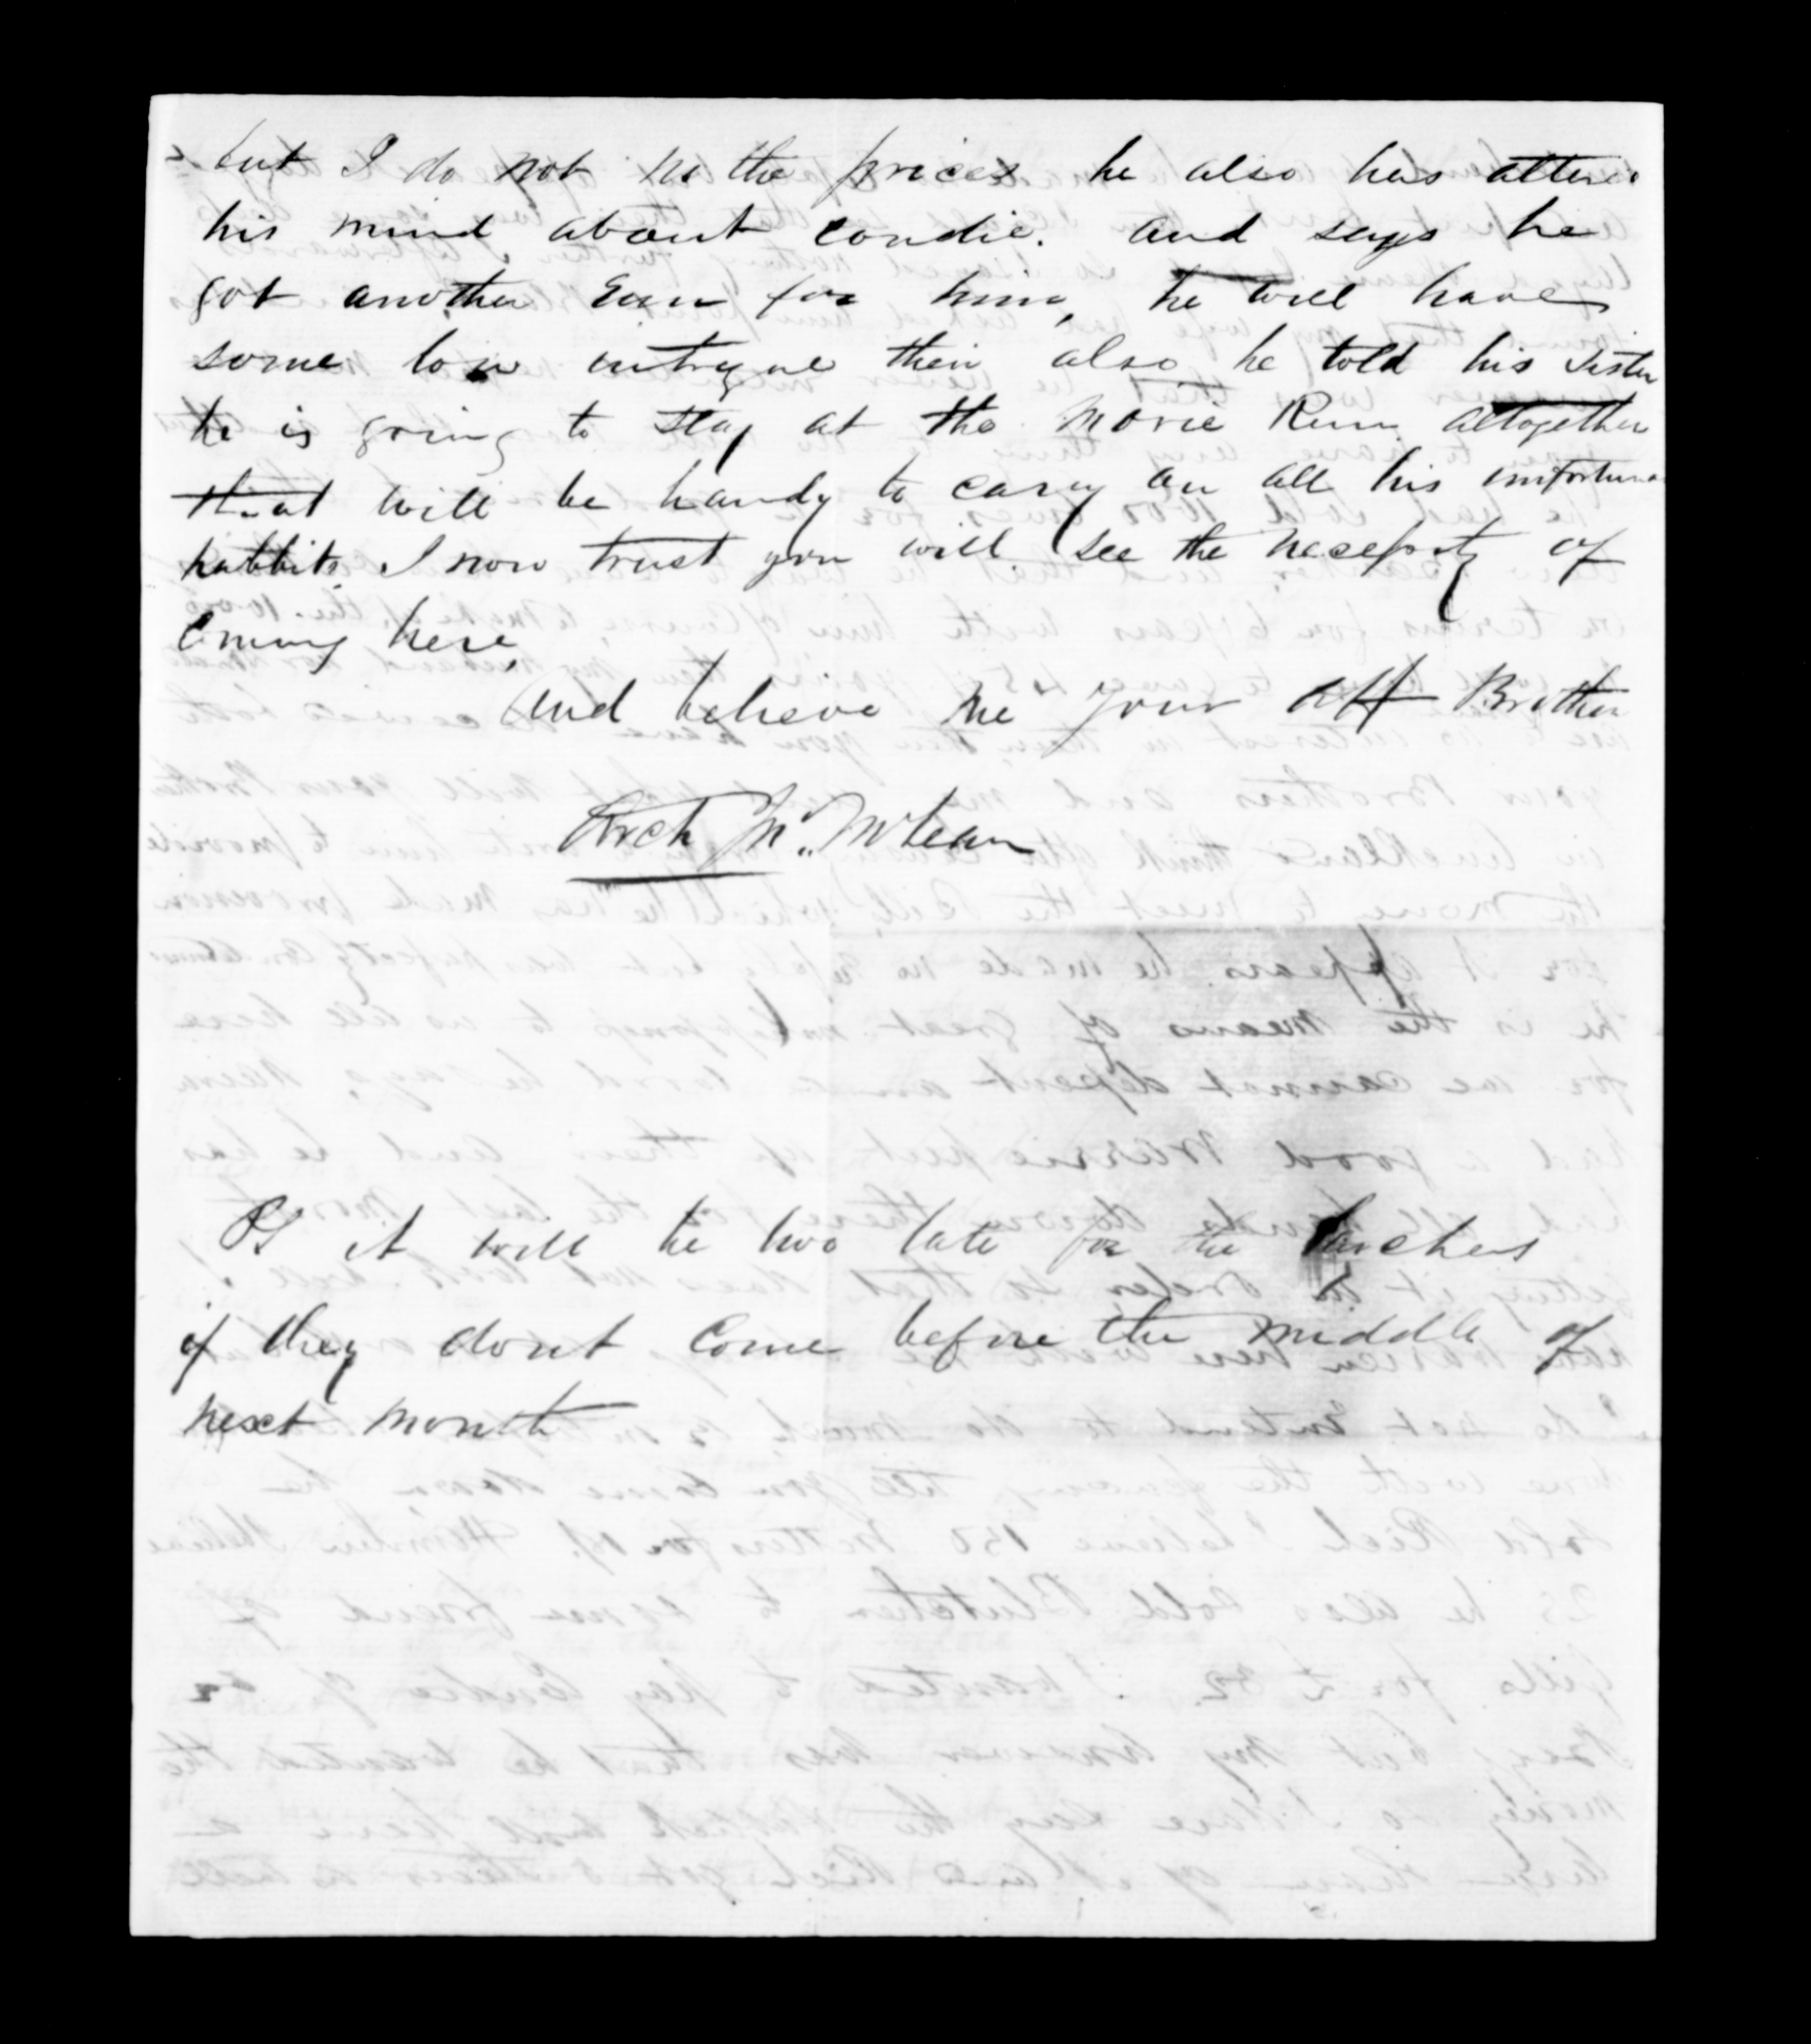 but I do not no the prices he also has altered
his mind about condie. and says he
got another Run for him, he will have
some low intrigue their also he told his Sister
he is going to stay at the Morie Run altogether
that will be handy to carry on all his unfortuna
habbits I now trust you will see the nesesfsity of
Coming here,
and believe me your aff Brother
Arch Jn. McLean
PS it will be two late for the
if they dont come before the middle of
next month